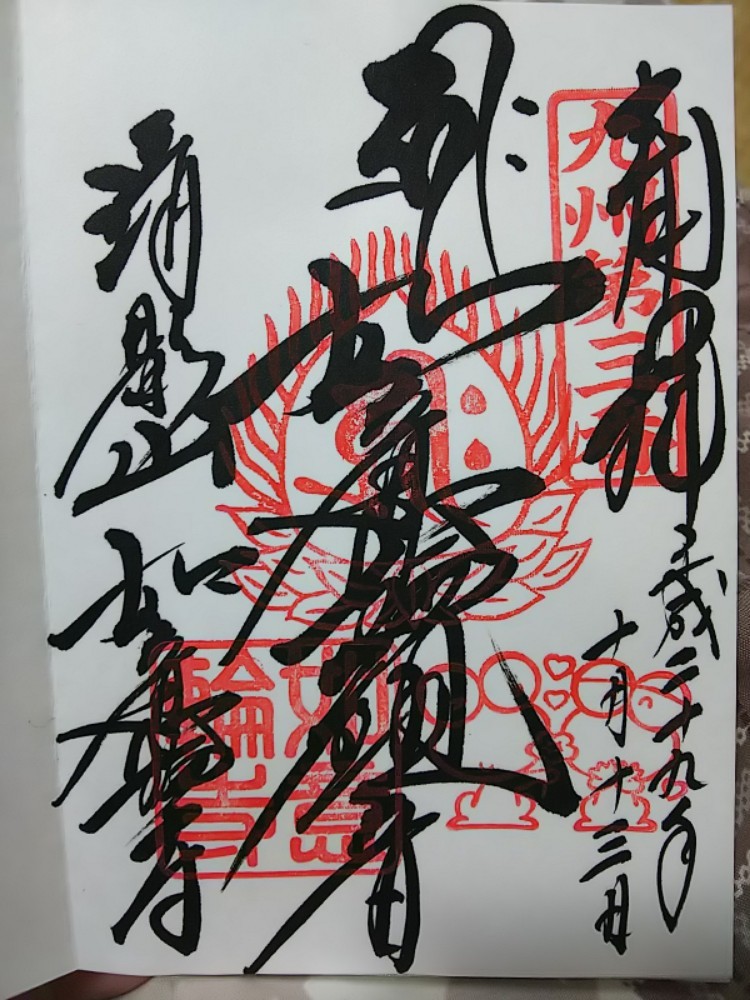 奉拝
平成二十九年
十月十三日
九州第三番
如意輪観音
清影山
如意輪寺
如意
輪寺